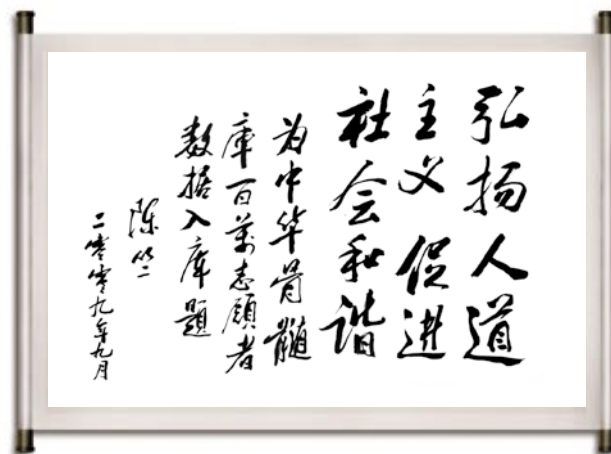 弘扬人道
主义促进
社会和谐
为中华骨髓
库百萬志愿者
数据入库题
陈竺
二零零九年九月